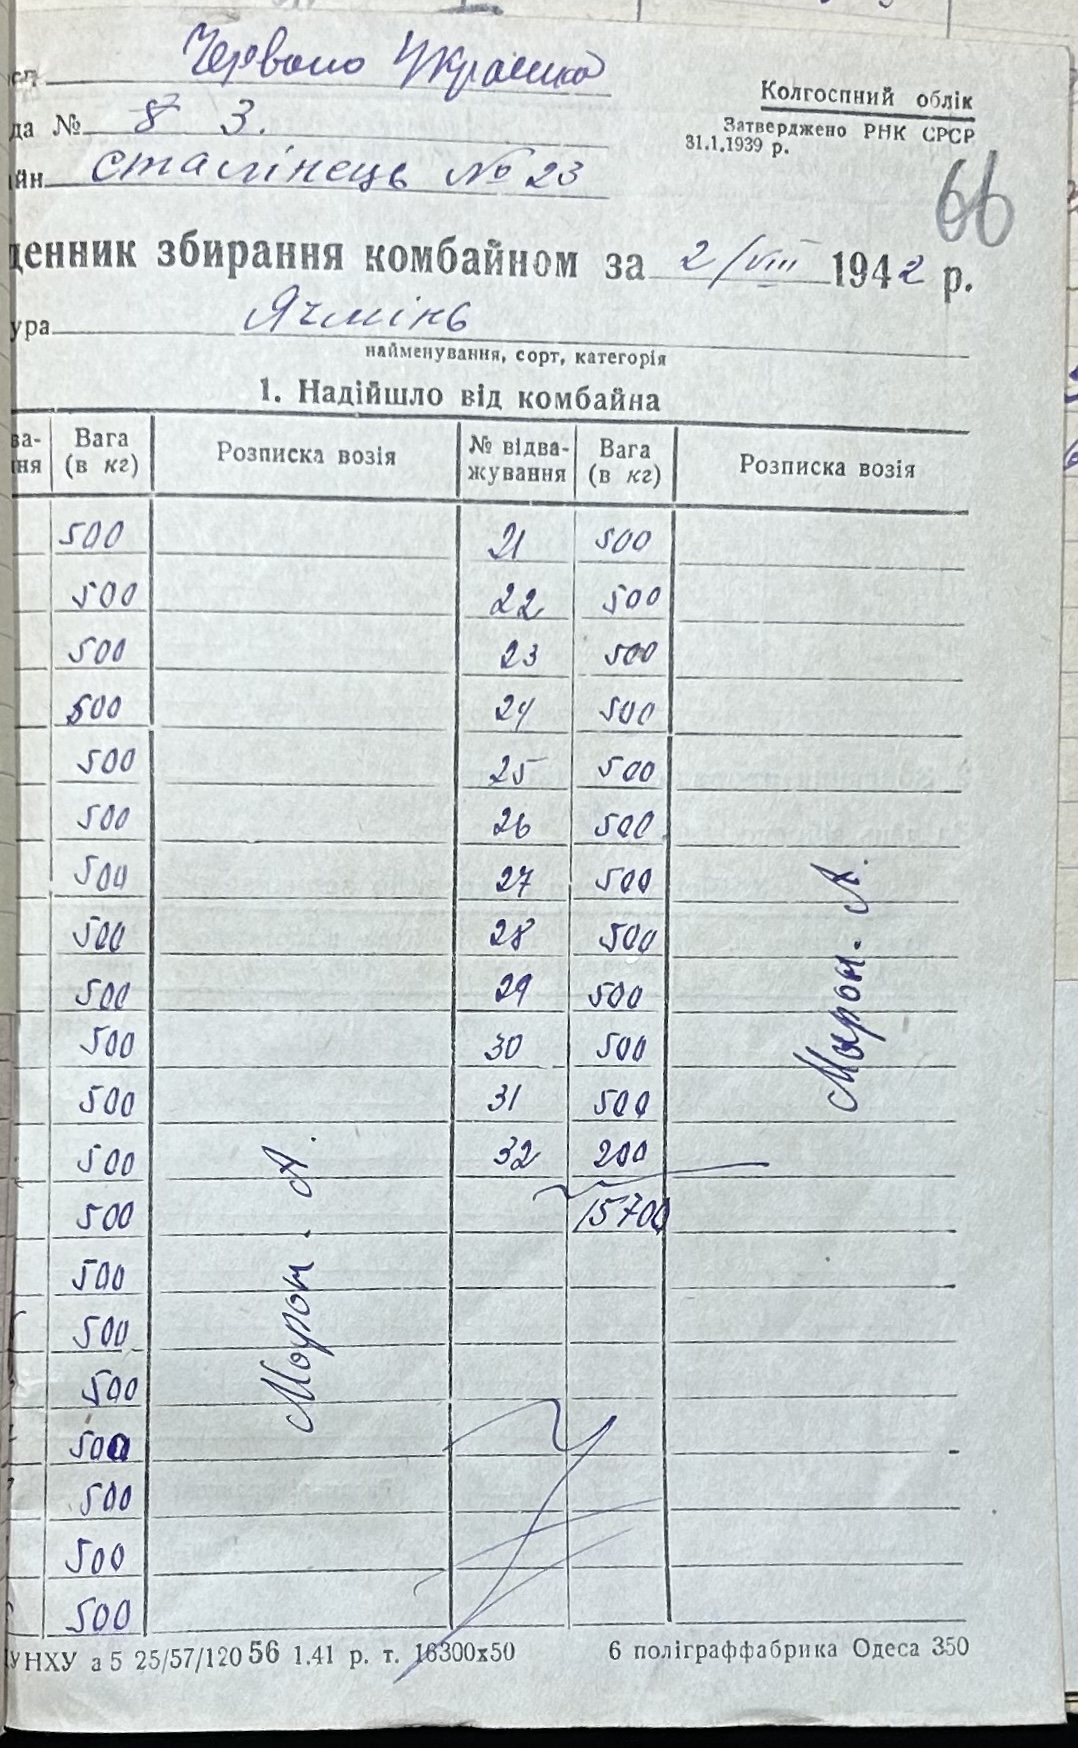 сп. Червона Українка
да № 8 3.
йн. сталінець № 23
Колгоспний облік
Затверджено РНК СРСР
31.1.1939 р.
66
денник збирання комбайном за 2/VIII 1942 р.
ура Ячмінь
найменування, сорт, категорія
1. Надійшло від комбайна
ва-ня Вага (в кг) Розписка возія № відва-жування Вага (в кг) Розписка возія
500 21 500
500 22 500
500 23 500
500 24 500
500 25 500
500 26 500
500 27 500
500 28 500
500 29 500
500 30 500
500 31 500
500 32 200
500 15700
500
500
500
500
500
500
500
УНХУ а 5 25/57/120 56 1.41 р. т. 16300х50 6 поліграффабрика Одеса 350